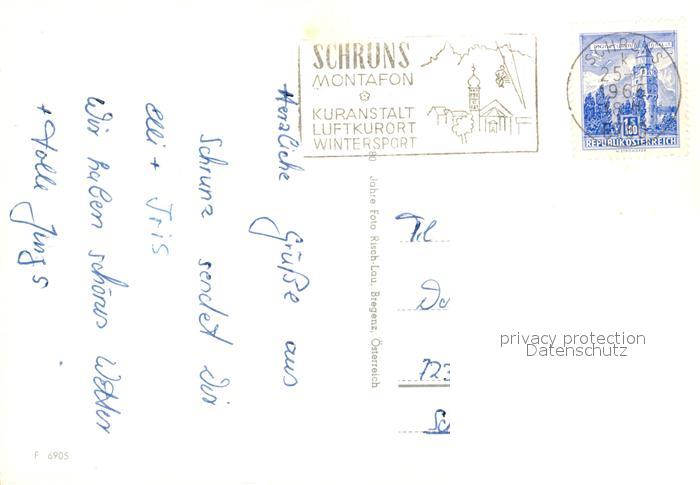 SCHRUNS
MONTAFON
KURANSTALT
LUFTKURORT
WINTERSPORT
SCHRUNS
25-
196
REPUBLIK ÖSTERREICH
Herzliche Grüße aus
Schruns sendet Dir
Elli + Iris
Wir haben schönes Wetter
+ tolle Jungs
Jahre Foto Risch-Lau, Bregenz, Österreich
Til
Do
723
Sc
privacy protection
Datenschutz
F 6905